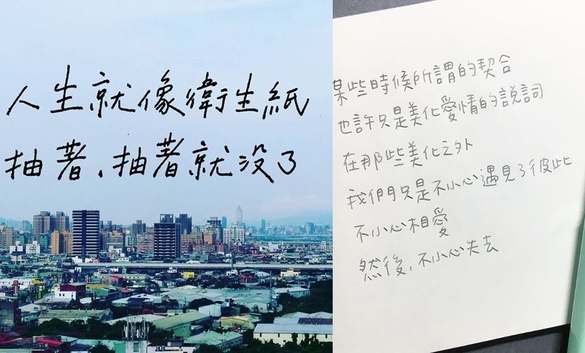 人生就像衛生紙
抽著、抽著就沒了
某些時候所謂的契合
也許只是美化愛情的說詞
在那些美化之外
我們只是不小心遇見了彼此
不小心相愛
然後、不小心失去